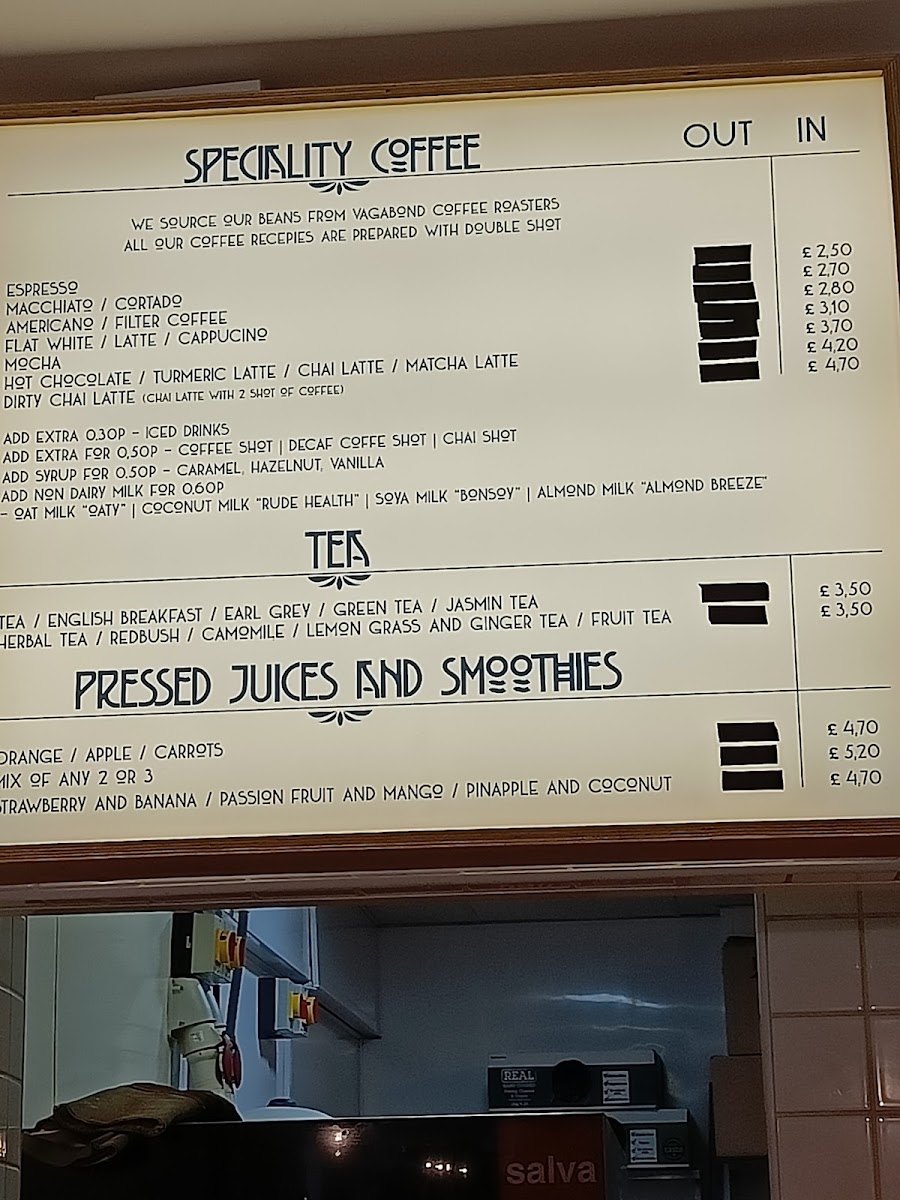 SPECIALITY COFFEE OUT IN
WE SOURCE OUR BEANS FROM VAGABOND COFFEE ROASTERS
ALL OUR COFFEE RECEPIES ARE PREPARED WITH DOUBLE SHOT
ESPRESSO £ 2,50
MACCHIATO / CORTADO £ 2,70
AMERICANO / FILTER COFFEE £ 2,80
FLAT WHITE / LATTE / CAPPUCINO £ 3,10
MOCHA £ 3,70
HOT CHOCOLATE / TURMERIC LATTE / CHAI LATTE / MATCHA LATTE £ 4,20
DIRTY CHAI LATTE (CHAI LATTE WITH 2 SHOT OF COFFEE) £ 4,70
ADD EXTRA 0.30P - ICED DRINKS
ADD EXTRA FOR 0,50P - COFFEE SHOT | DECAF COFFE SHOT | CHAI SHOT
ADD SYRUP FOR 0.50P - CARAMEL, HAZELNUT, VANILLA
ADD NON DAIRY MILK FOR 0.60P
- OAT MILK "OATY" | COCONUT MILK "RUDE HEALTH" | SOYA MILK "BONSOY" | ALMOND MILK "ALMOND BREEZE"
TEA
TEA / ENGLISH BREAKFAST / EARL GREY / GREEN TEA / JASMIN TEA £ 3,50
HERBAL TEA / REDBUSH / CAMOMILE / LEMON GRASS AND GINGER TEA / FRUIT TEA £ 3,50
PRESSED JUICES AND SMOOTHIES
ORANGE / APPLE / CARROTS £ 4,70
MIX OF ANY 2 OR 3 £ 5,20
STRAWBERRY AND BANANA / PASSION FRUIT AND MANGO / PINAPPLE AND COCONUT £ 4,70
REAL
salva